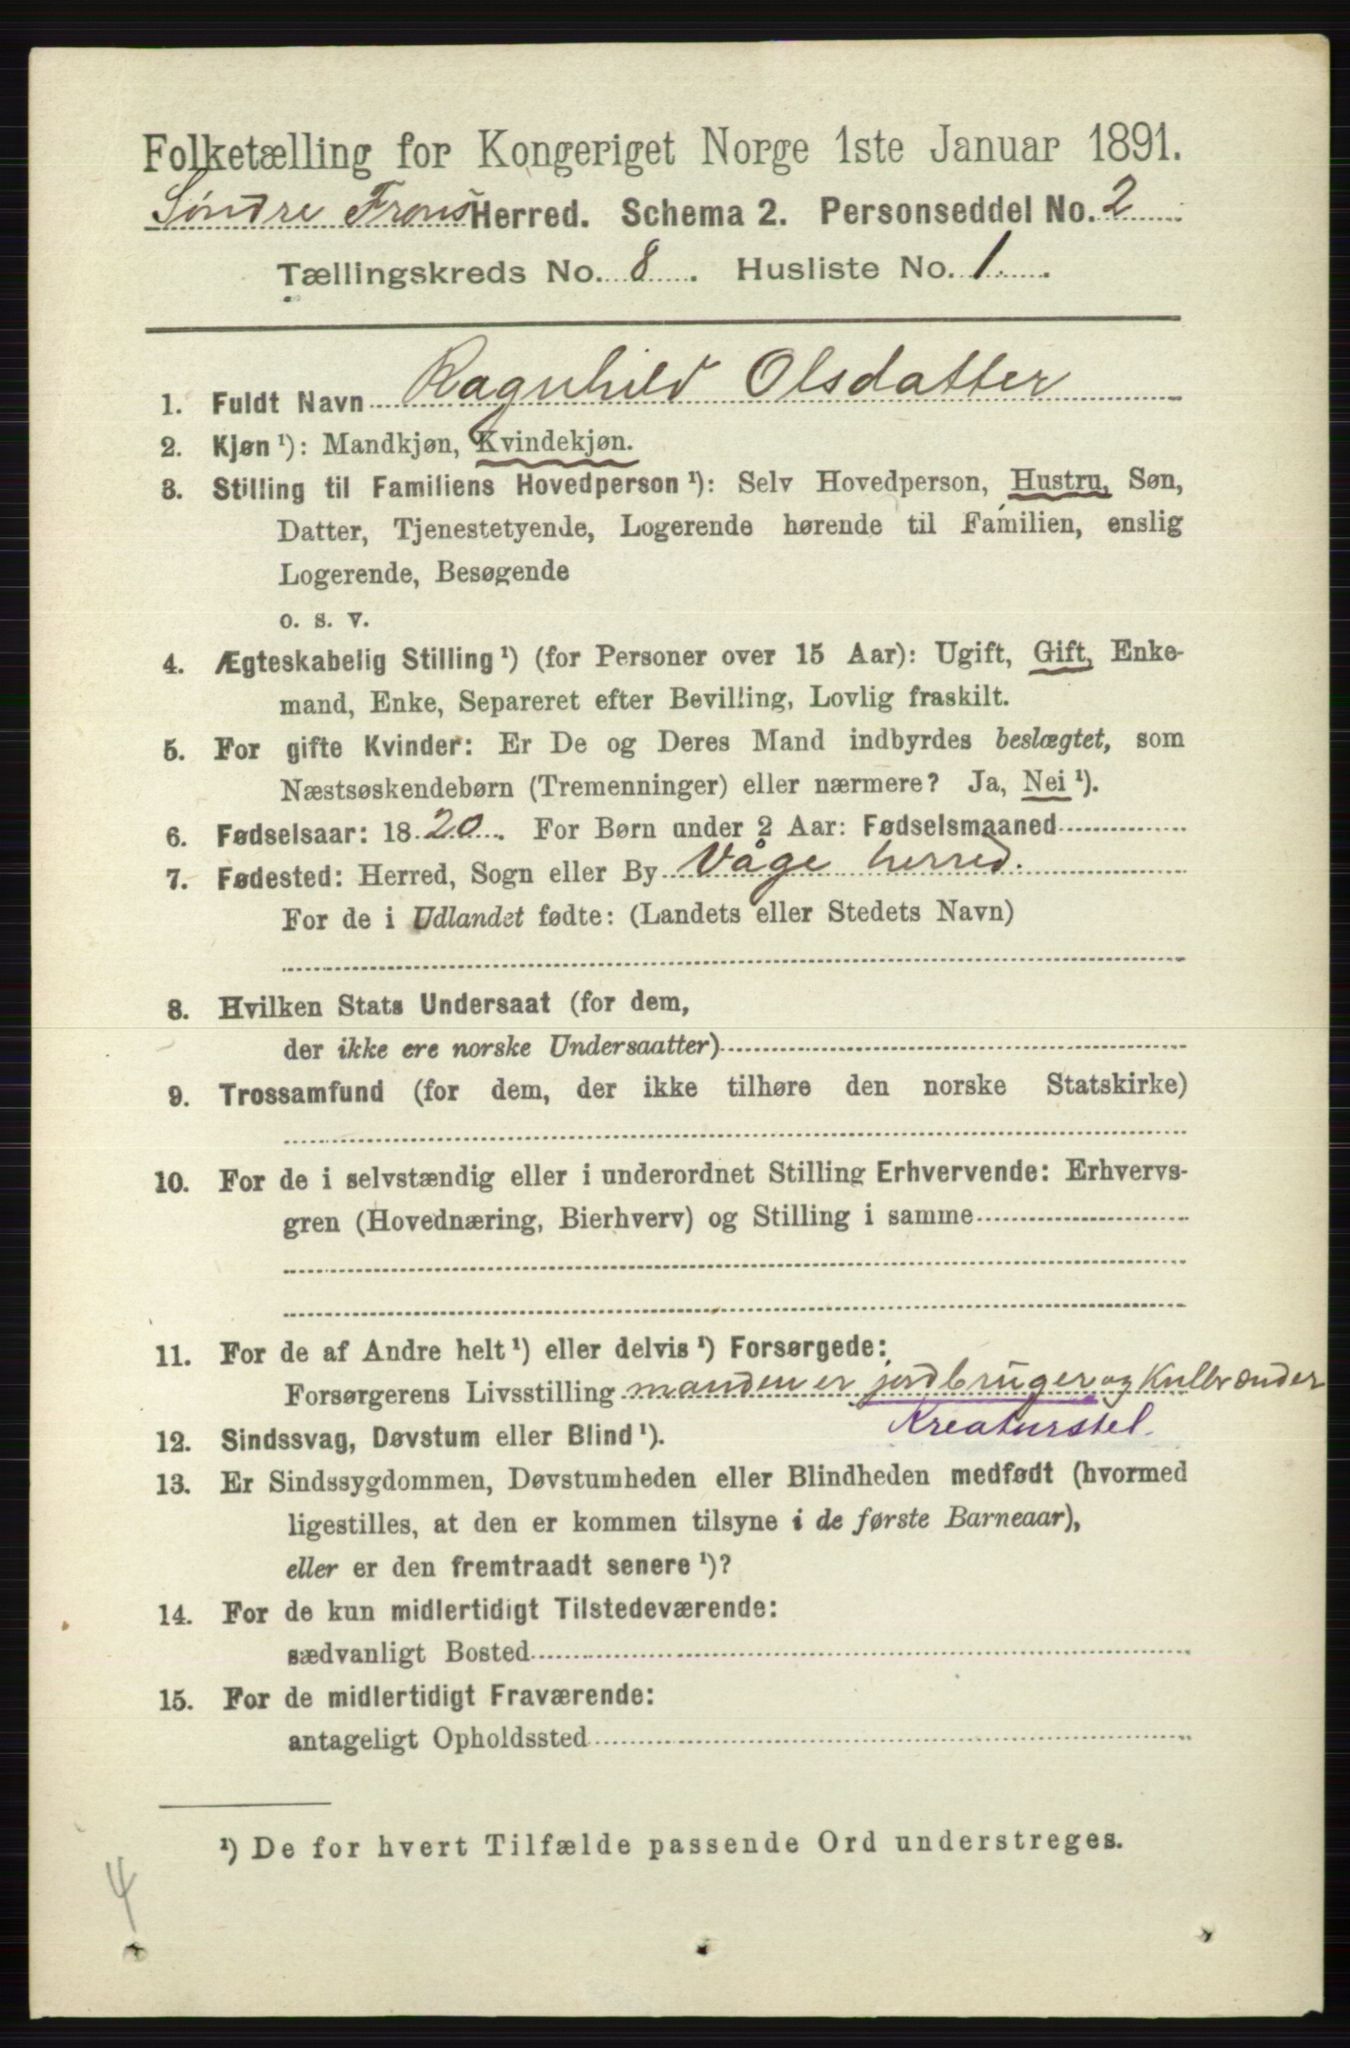 Folketælling for Kongeriget Norge 1ste Januar 1891.
Søndre Frons Herred. Schema 2. Personseddel No. 2
Tællingskreds No. 8. Husliste No. 1.
1. Fuldt Navn Ragnhild Olsdatter
2. Kjøn ¹): Mandkjøn, Kvindekjøn.
3. Stilling til Familiens Hovedperson ¹): Selv Hovedperson, Hustru, Søn,
Datter, Tjenestetyende, Logerende hørende til Familien, enslig
Logerende, Besøgende
o. s. v.
4. Ægteskabelig Stilling ¹) (for Personer over 15 Aar): Ugift, Gift, Enke-
mand, Enke, Separeret efter Bevilling, Lovlig fraskilt.
5. For gifte Kvinder: Er De og Deres Mand indbyrdes beslægtet, som
Næstsøskendebørn (Tremenninger) eller nærmere? Ja, Nei ¹).
6. Fødselsaar: 1820. For Børn under 2 Aar: Fødselsmaaned
7. Fødested: Herred, Sogn eller By Våge herred.
For de i Udlandet fødte: (Landets eller Stedets Navn)
8. Hvilken Stats Undersaat (for dem,
der ikke ere norske Undersaatter)
9. Trossamfund (for dem, der ikke tilhøre den norske Statskirke)
10. For de i selvstændig eller i underordnet Stilling Erhvervende: Erhvervs-
gren (Hovednæring, Bierhverv) og Stilling i samme
11. For de af Andre helt ¹) eller delvis ¹) Forsørgede:
Forsørgerens Livsstilling manden er jordbruger og Kulbrænder
Kreaturstel.
12. Sindssvag, Døvstum eller Blind ¹).
13. Er Sindssygdommen, Døvstumheden eller Blindheden medfødt (hvormed
ligestilles, at den er kommen tilsyne i de første Barneaar),
eller er den fremtraadt senere ¹)?
14. For de kun midlertidigt Tilstedeværende:
sædvanligt Bosted
15. For de midlertidigt Fraværende:
antageligt Opholdssted
¹) De for hvert Tilfælde passende Ord understreges.
4